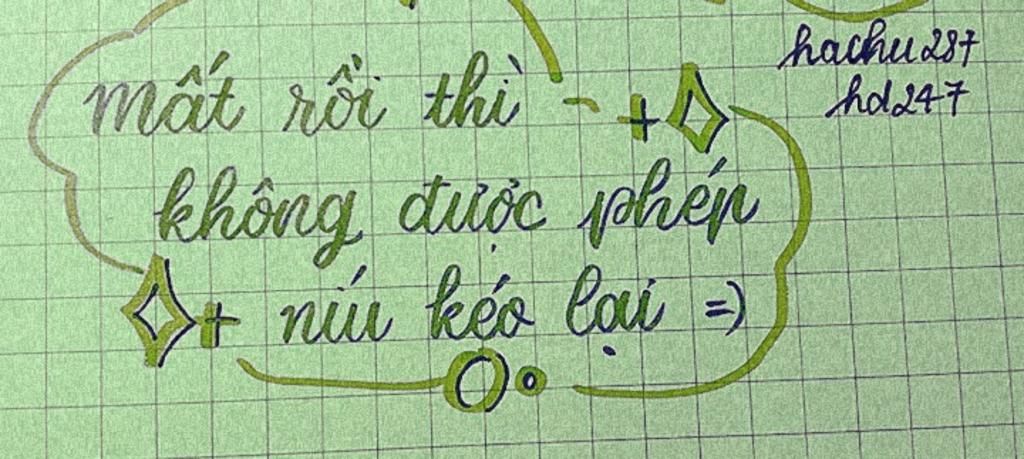 hachu287
hd247
mất rồi thì
không được phép
níu kéo lại =)